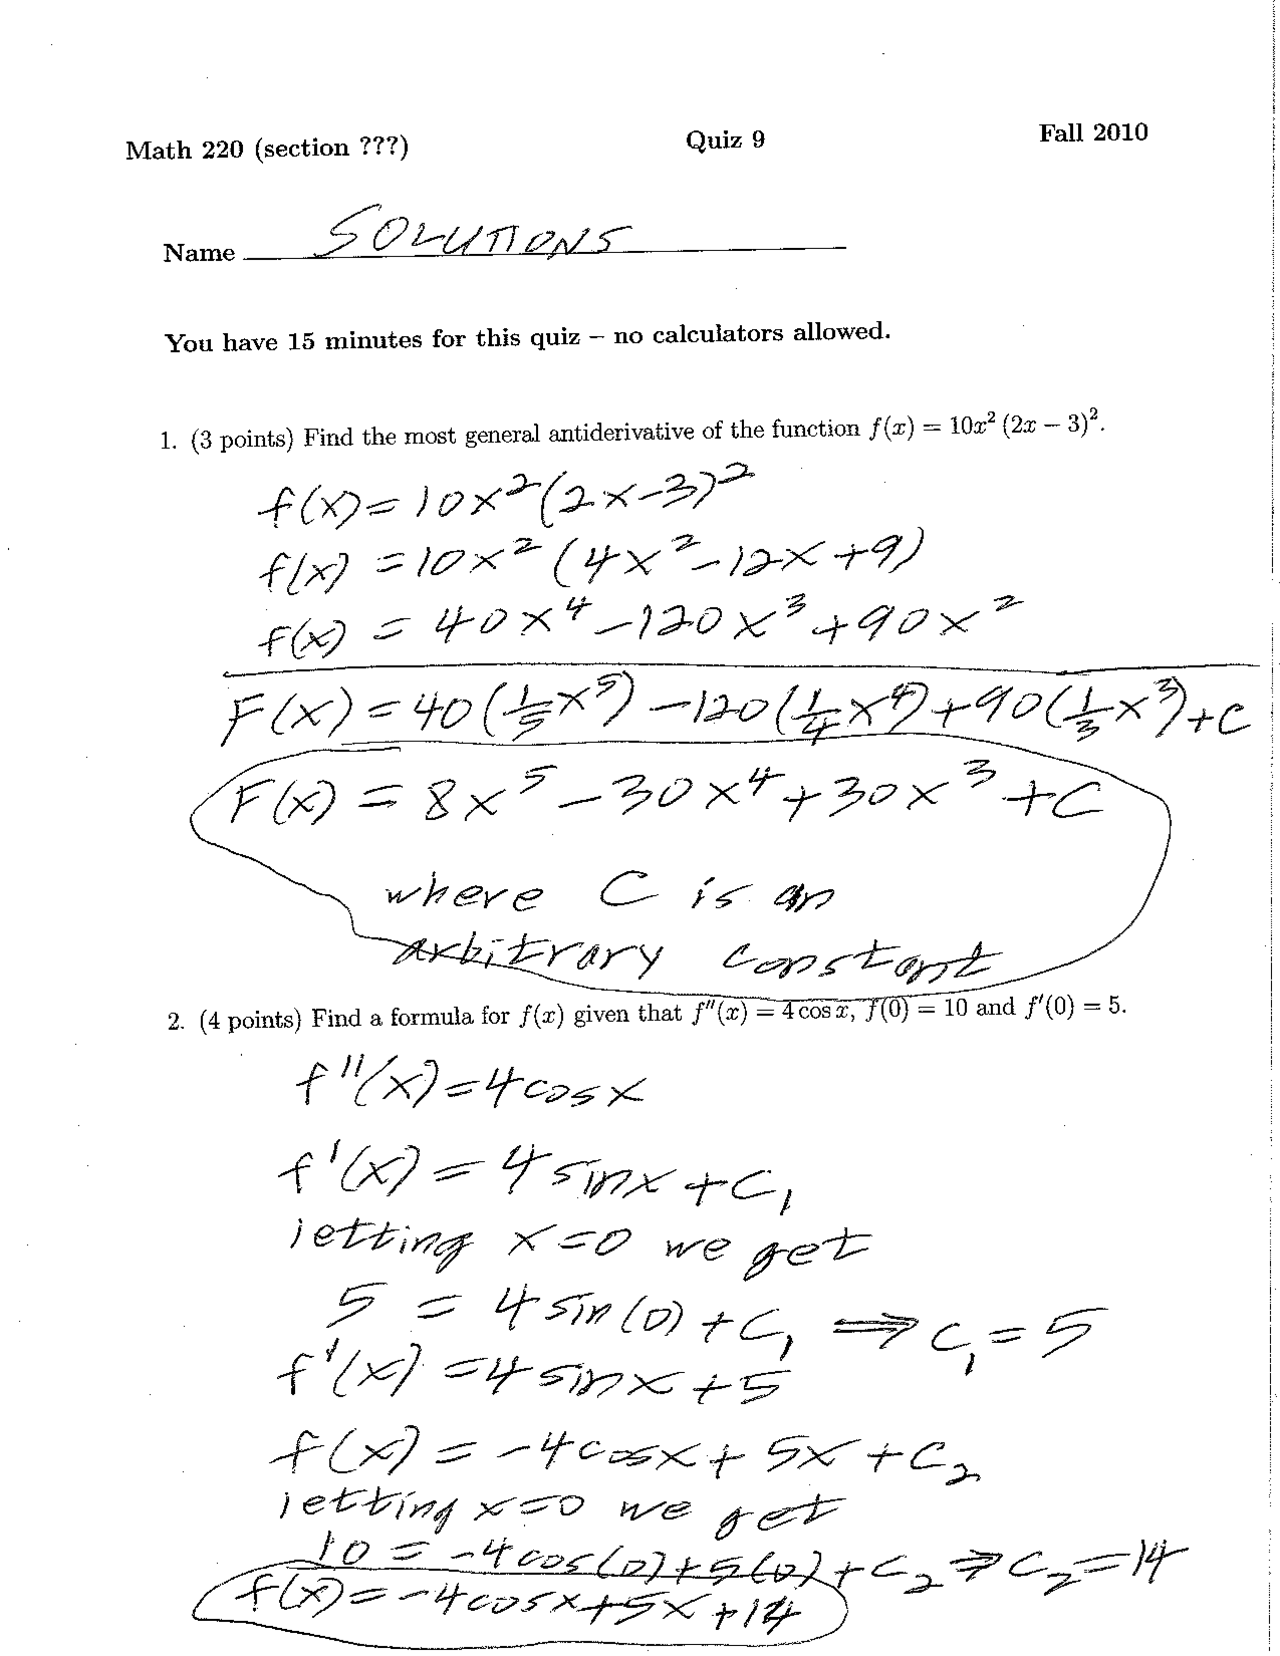 Math 220 (section ???) Quiz 9 Fall 2010
Name SOLUTIONS
You have 15 minutes for this quiz – no calculators allowed.
1. (3 points) Find the most general antiderivative of the function f(x) = 10x² (2x − 3)².
f(x) = 10x²(2x-3)²
f(x) = 10x² (4x²-12x+9)
f(x) = 40x⁴-120x³+90x²
F(x) = 40(1/5 x⁵) -120(1/4 x⁴)+90(1/3 x³)+C
F(x) = 8x⁵-30x⁴+30x³+C
where C is an
arbitrary constant
2. (4 points) Find a formula for f(x) given that f″(x) = 4 cos x, f(0) = 10 and f′(0) = 5.
f″(x)=4cosx
f′(x) = 4 sinx +C₁
letting x=0 we get
5 = 4 sin(0) + C₁ ⇒ C₁ = 5
f′(x) =4 sinx+5
f(x) = -4cosx+ 5x +C₂
letting x=0 we get
10 = -4cos(0)+5(0)+C₂ ⇒ C₂=14
f(x)=-4cosx+5x+14